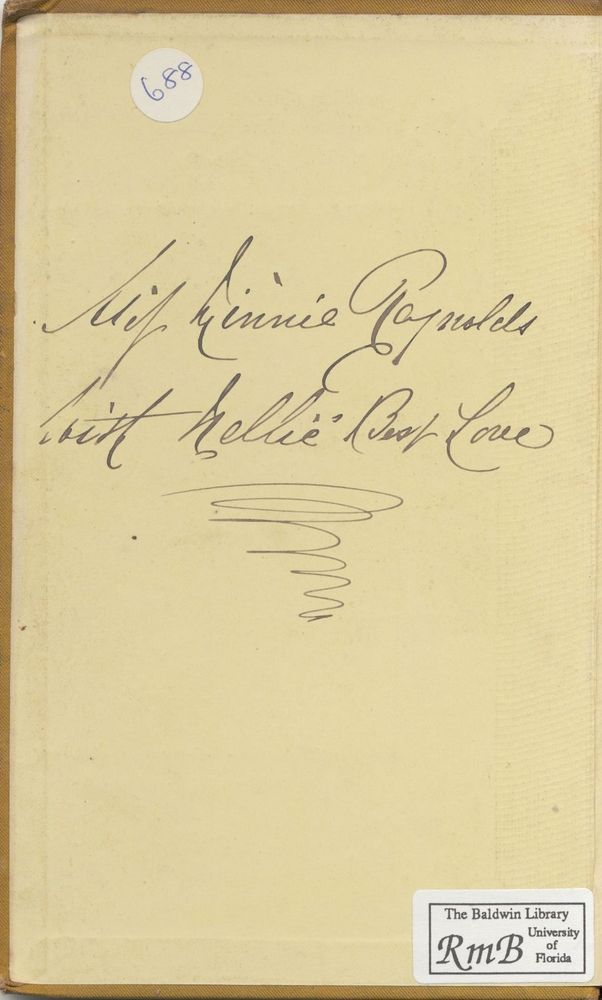 688
Miss Minnie Reynolds
with Nellie's Best Love
The Baldwin Library
RmB University
of
Florida